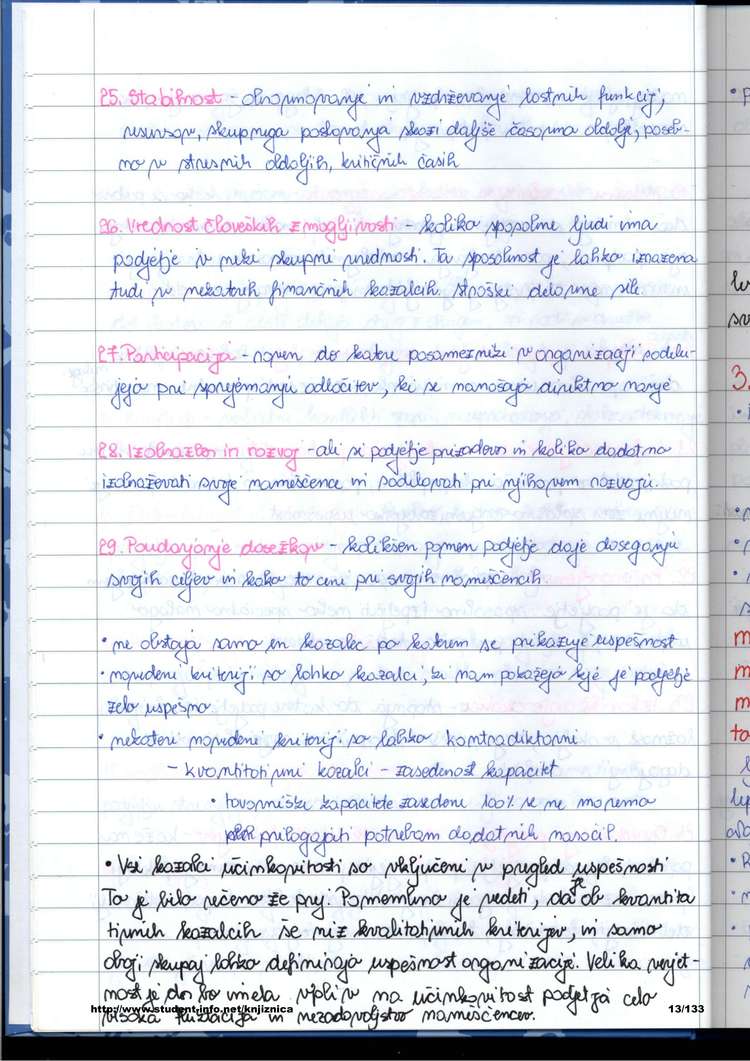 25. Stabilnost - obnavljanje in vzdrževanje lastnih funkcij,
resursov, skupnega poslovanja skozi daljše časovna obdobja, poseb-
no v stresnih obdobjih, kritičnih časih
26. Vrednost človeških zmogljivosti - koliko sposobne ljudi ima
podjetje v neki skupni vrednosti. Ta sposobnost je lahko izražena
tudi v nekaterih finančnih kazalcih stroški delovne sile.
27. Participacija - raven do katere posamezniki v organizaciji sodelu-
jejo pri sprejemanju odločitev, ki se nanašajo direktno nanje
28. Izobrazba in razvoj - ali si podjetje prizadeva in koliko dodatno
izobraževati svoje nameščence in sodelovati pri njihovem razvoju.
29. Poudarjanje dosežkov - kolikšen pomen podjetje daje doseganju
svojih ciljev in kako to ceni pri svojih nameščencih
• ne obstaja samo en kazalec po katerem se prikazuje uspešnost
• navedeni kriteriji so lahko kazalci, ki nam pokažejo kje je podjetje
zelo uspešno
• nekateri navedeni kriteriji so lahko kontradiktorni
- kvantitativni kazalci - zasedenost kapacitet
• tovarniške kapacitete zasedene 100% se ne moremo
prilagajati potrebam dodatnih naročil.
• Vsi kazalci učinkovitosti so vključeni v pregled uspešnosti
To je bilo rečeno že prej. Pomembno je vedeti, da je ob kvantita
tivnih kazalcih še niz kvalitativnih kriterijev, in samo
oboji skupaj lahko definirajo uspešnost organizacije. Velika verjet-
nost je da bo imela vpliv na učinkovitost podjetja celo
visoka fluktuacija in nezadovoljstvo nameščencev.
http://www.student-info.net/knjiznica 13/133